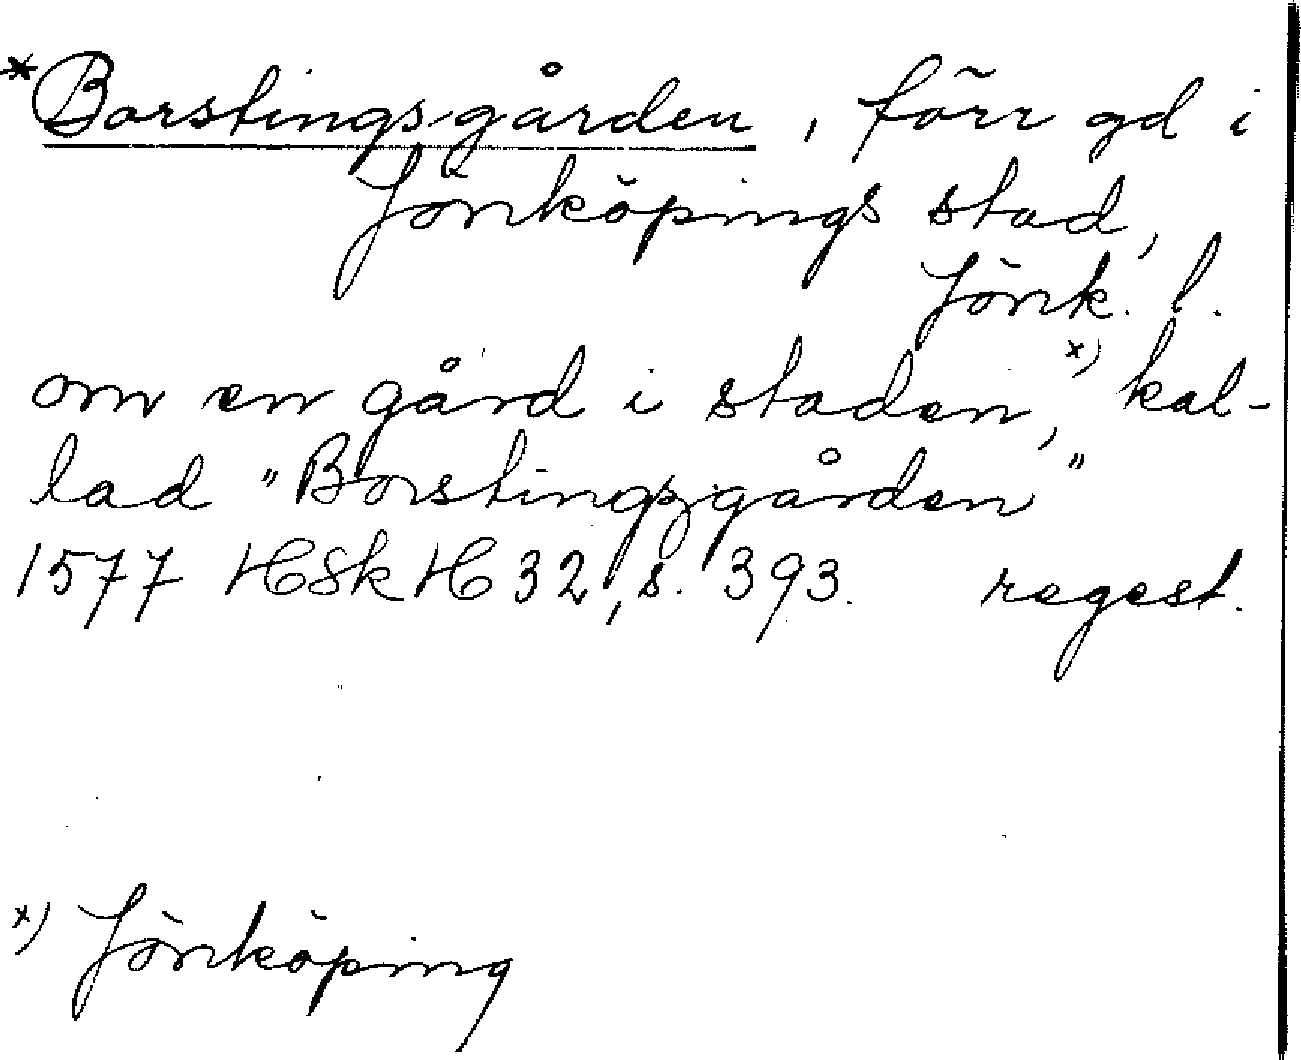 *Borstingsgården, förr gd i
Jönköpings stad,
Jönk. l.
om en gård i staden,x) kal-
lad "Borstingsgården"
1577 HSkH 32, s. 393. regest.
x) Jönköping